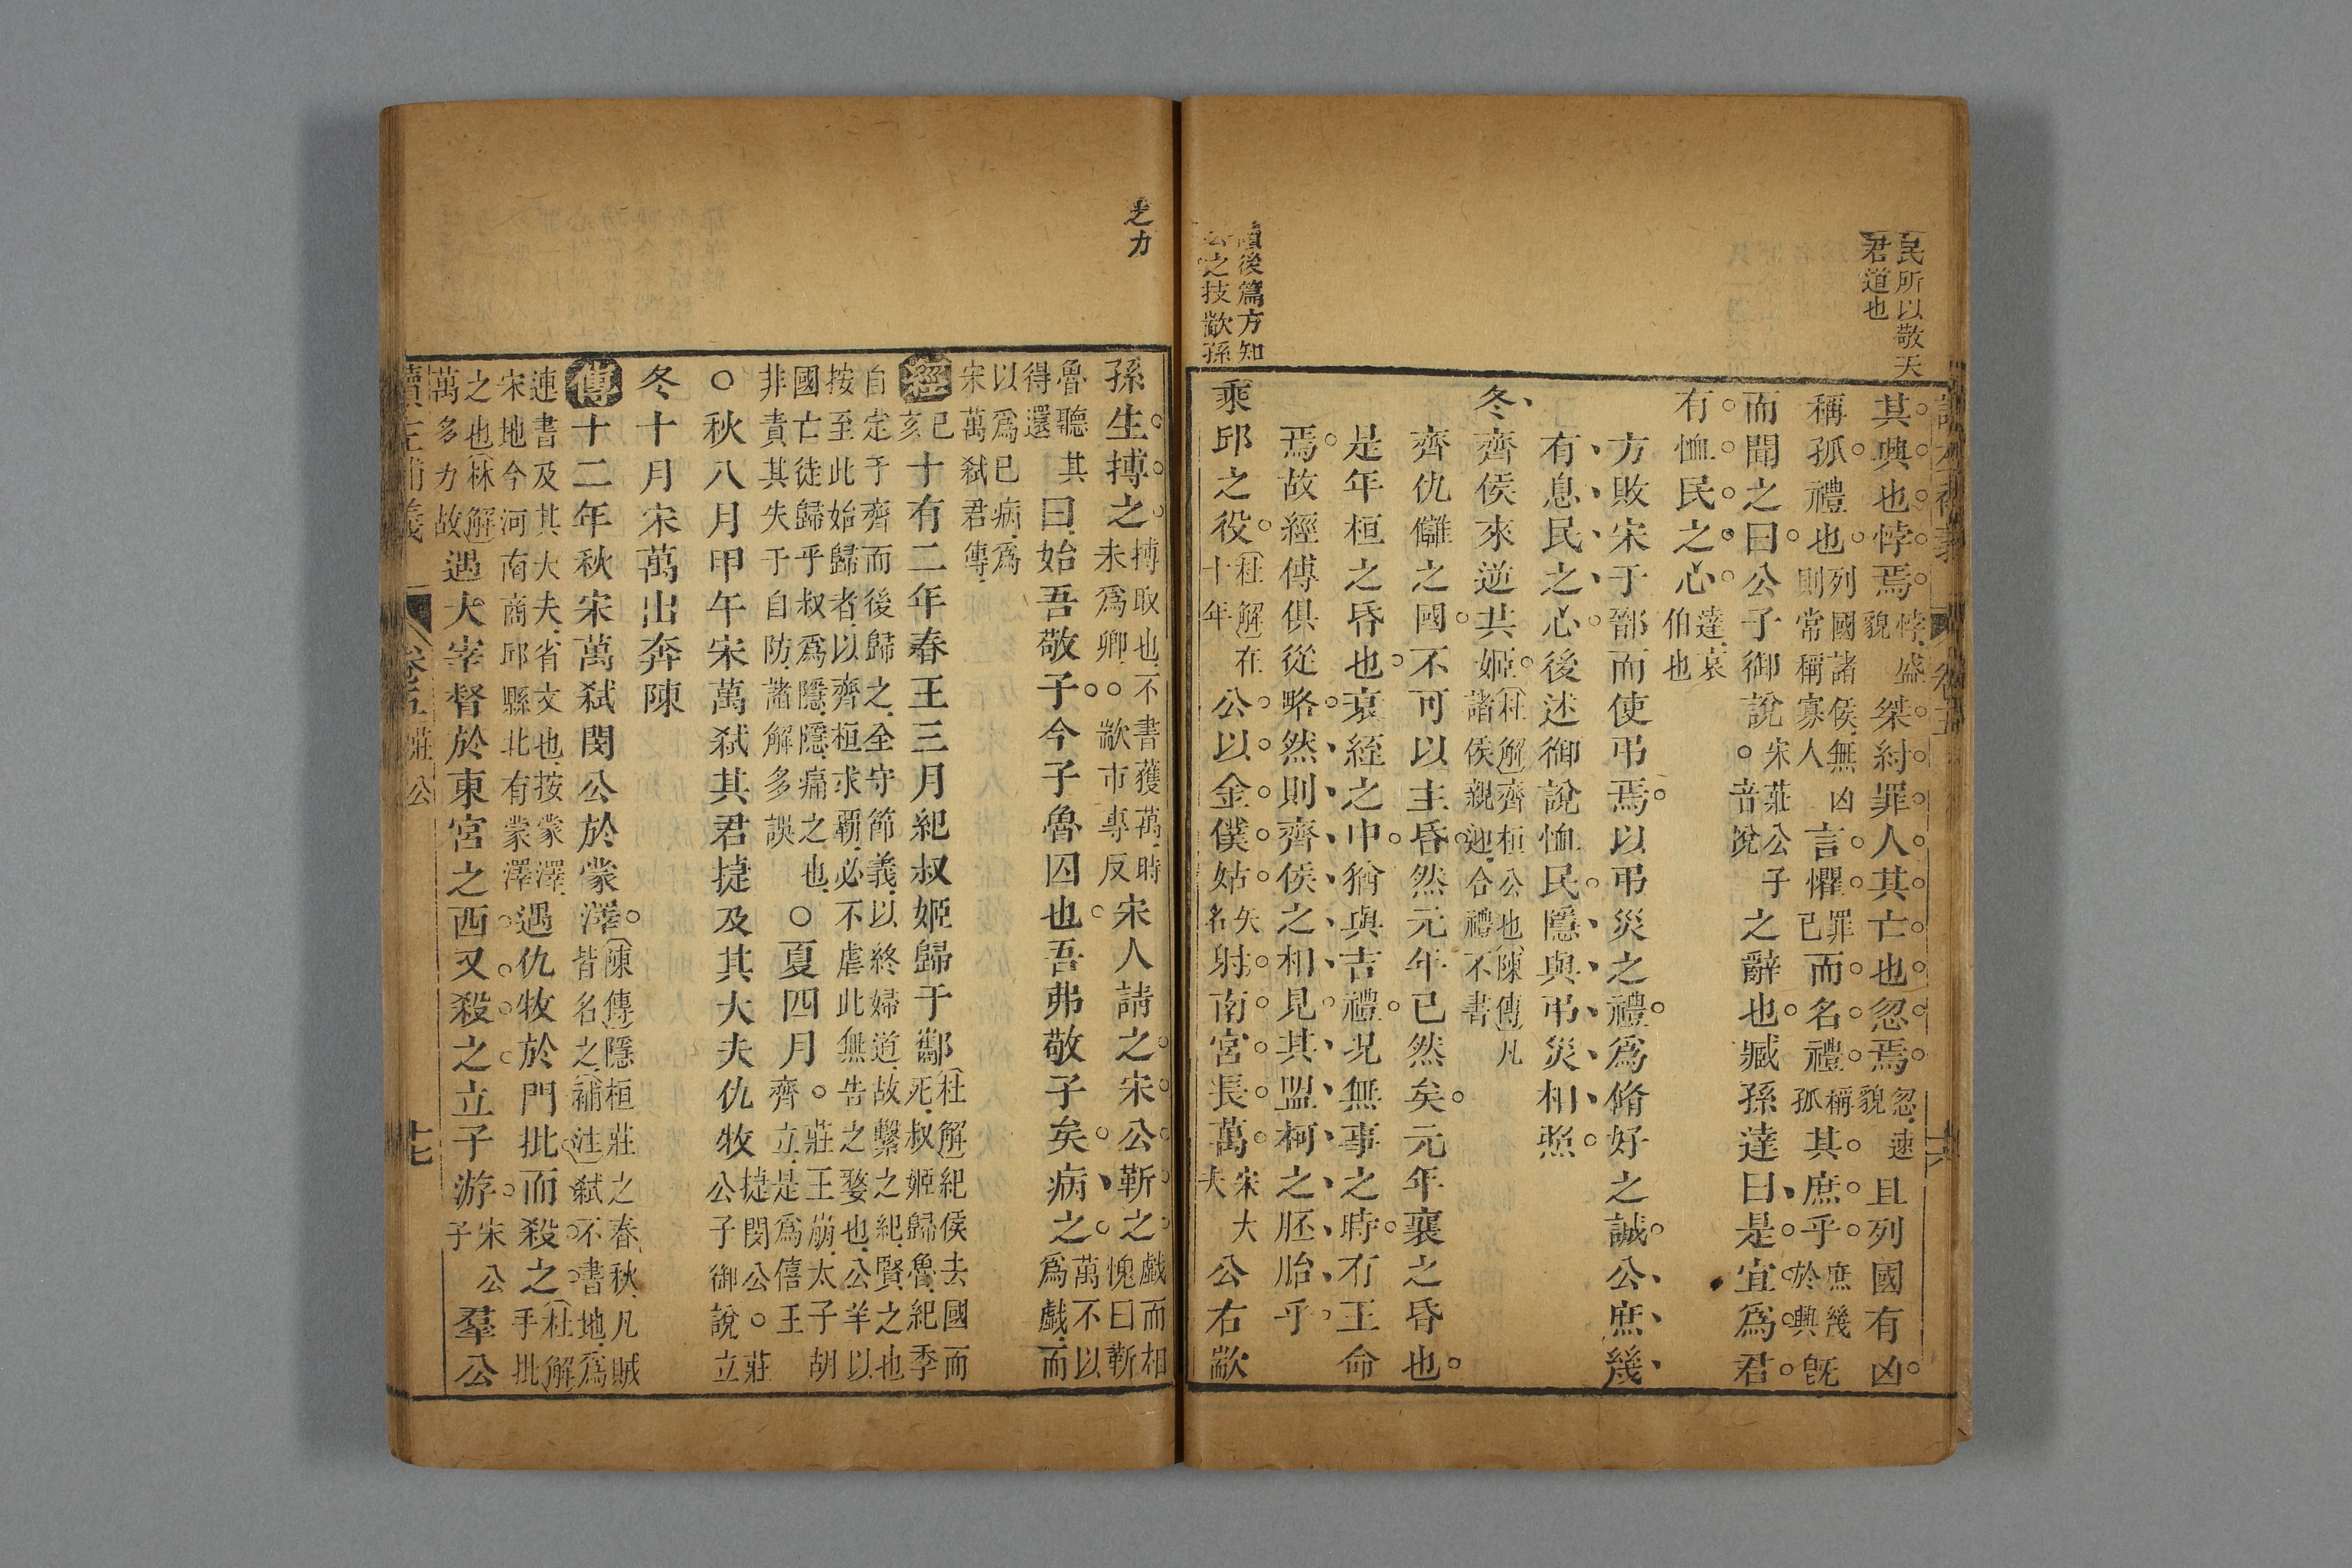 民所以敬天
君道也
其興也悖焉悖盛貌桀紂罪人其亡也忽焉忽速貌且列國有凶
稱孤禮也列國諸侯無凶則常稱寡人言懼罪己而名禮稱孤其庶乎庶幾於興旣
而聞之曰公子御說宋莊公子○音悅之辭也臧孫達曰是宜爲君
有恤民之心達哀伯也
方敗宋于鄑而使弔焉以弔災之禮爲脩好之誠公庶幾
有息民之心後述御說恤民隱與弔災相照
冬齊侯來逆共姬杜解齊桓公也陳傳凡諸侯親迎合禮不書
齊仇讎之國不可以主昏然元年已然矣元年襄之昏也
是年桓之昏也衰絰之中猶與吉禮況無事之時有王命
焉故經傳俱從略然則齊侯之相見其盟柯之胚胎乎
讀後篇方知
公之技歂孫
乘邱之役杜解在十年公以金僕姑矢名射南宮長萬宋大夫公右歂
之力
孫生搏之搏取也不書獲萬時未爲卿○歂市專反宋人請之宋公靳之戲而相愧曰靳
魯聽其得還曰始吾敬子今子魯囚也吾弗敬子矣病之萬不以爲戲而
以爲己病爲宋萬弒君傳
經己亥十有二年春王三月紀叔姬歸于酅杜解紀侯去國而死叔姬歸魯紀季
自定于齊而後歸之全守節義以終婦道故繫之紀賢之也
按至此始歸者以齊桓求霸必不虐此無告之婺也公羊以
國亡徒歸乎叔爲隱隱痛之也非責其失于自防諸解多誤○夏四月○莊王崩太子胡齊立是爲僖王
○秋八月甲午宋萬弒其君捷及其大夫仇牧捷閔公○莊公子御說立
冬十月宋萬出奔陳
傳十二年秋宋萬弒閔公於蒙澤陳傳隱桓莊之春秋凡賊皆名之補注弒不書地爲
連書及其大夫省文也按蒙澤宋地今河南商邱縣北有蒙澤遇仇牧於門批而殺之杜解手批
之也林解萬多力故遇大宰督於東宮之西又殺之立子游宋公子羣公
讀左補義 卷五 莊公 十七